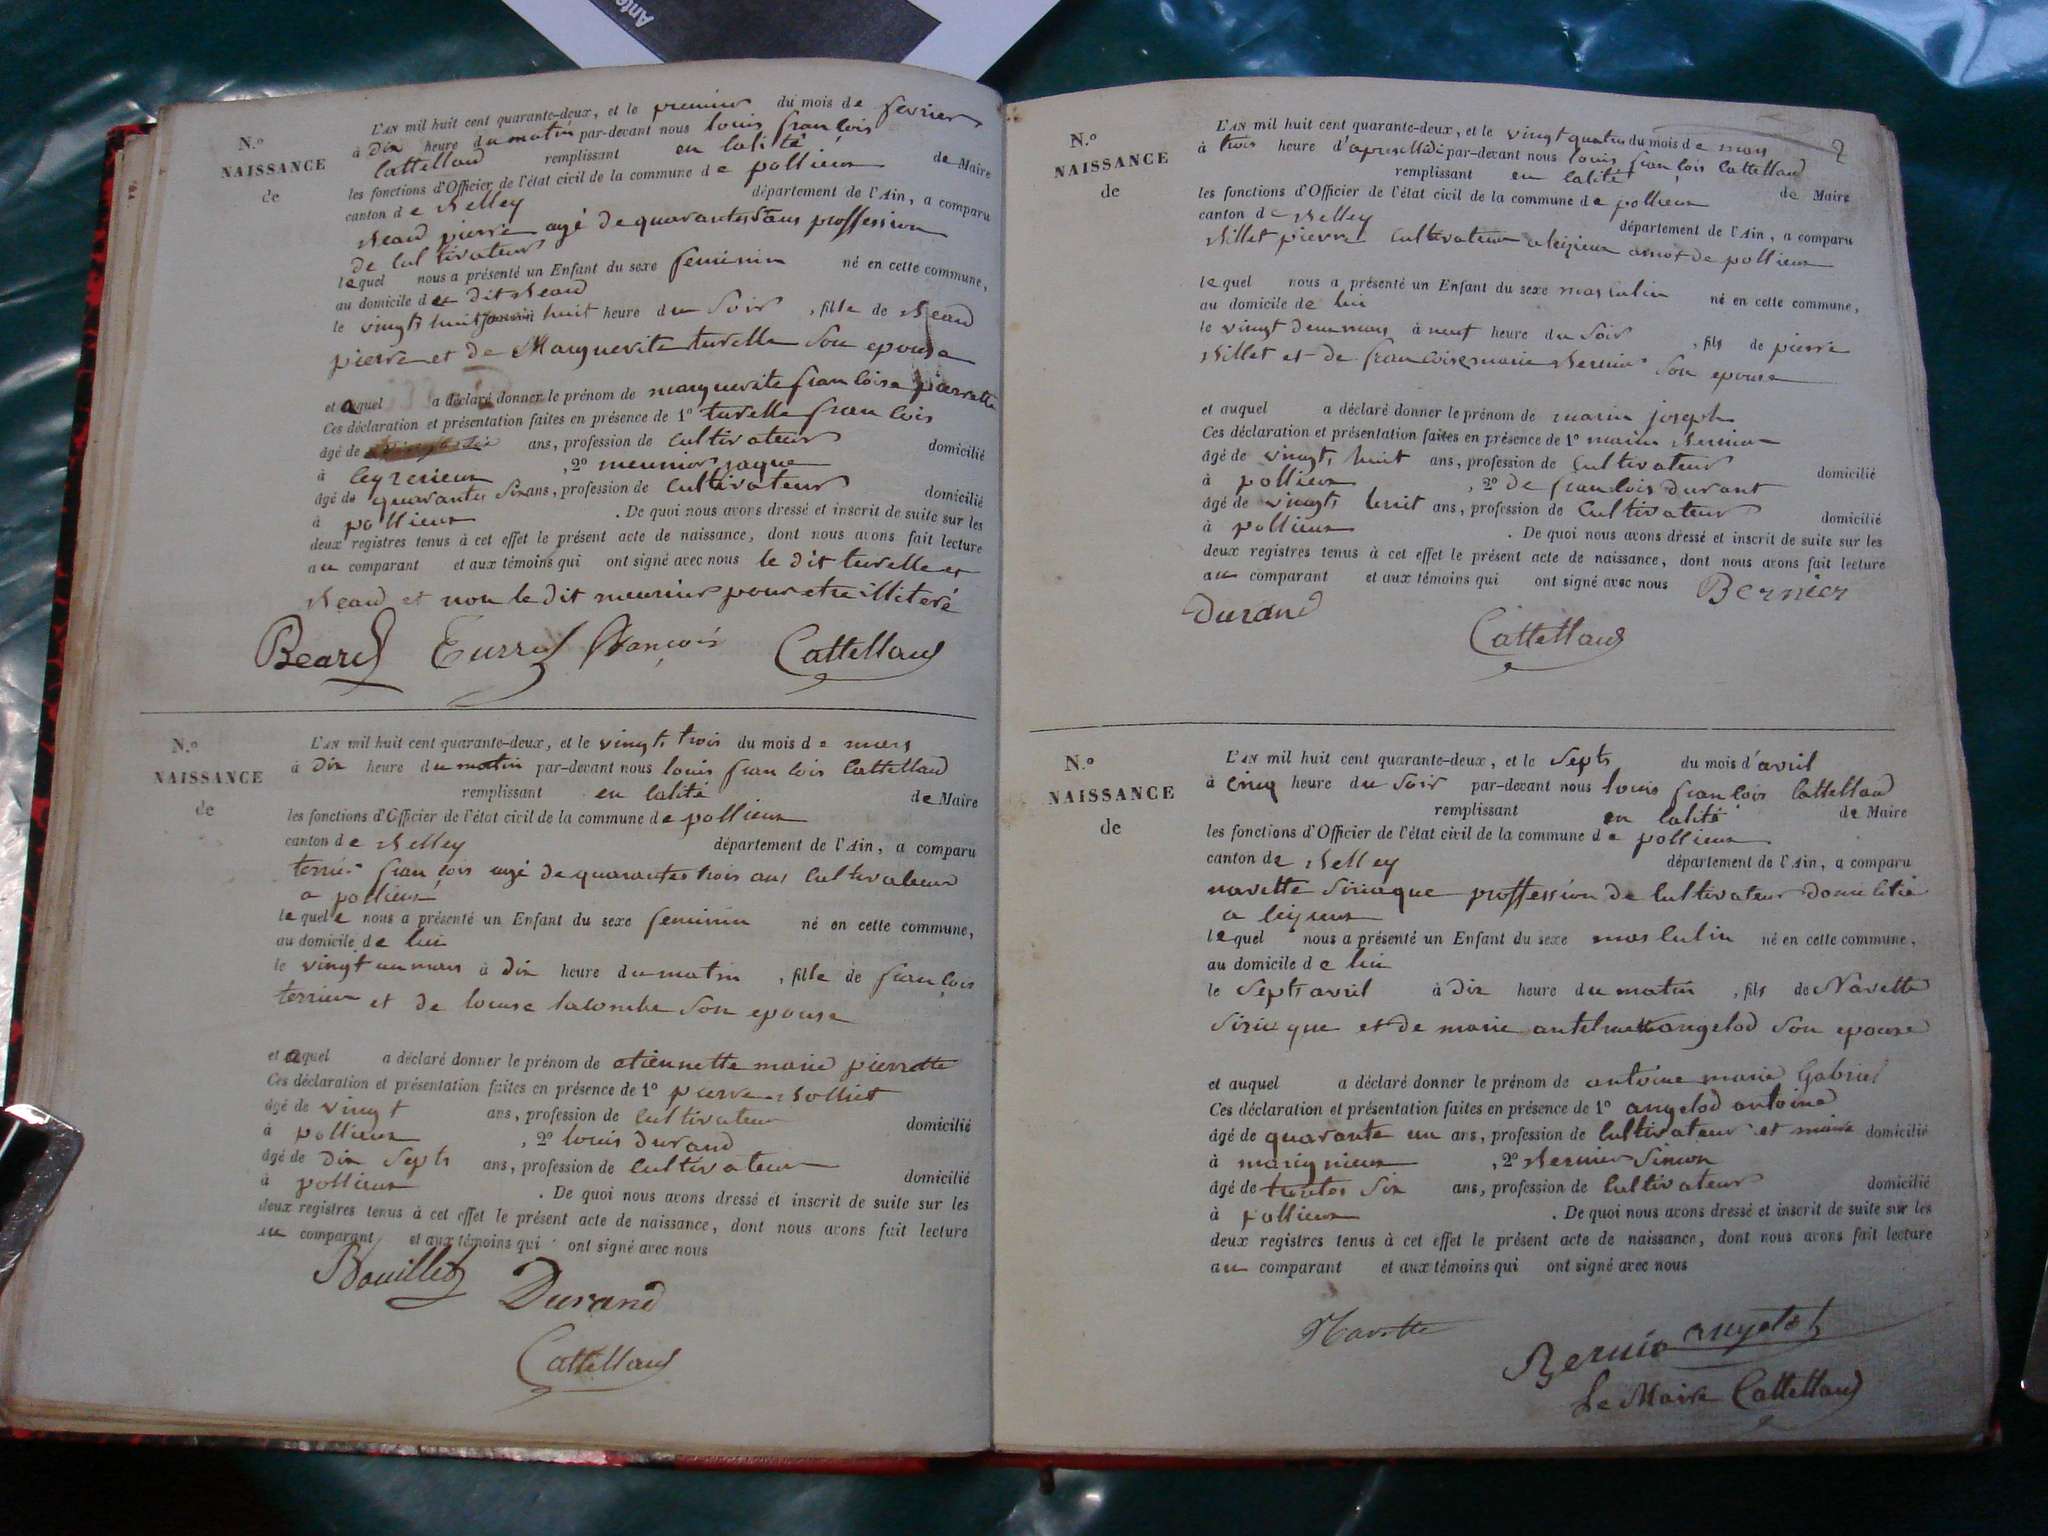 Anto
N.º
NAISSANCE
de
L'AN mil huit cent quarante-deux, et le premier du mois de fevrier
à dix heure du matin par-devant nous louis francois
Cattelland remplissant en calité de Maire
les fonctions d'Officier de l'état civil de la commune de pollieux
canton de Belley département de l'Ain, a comparu
Beard pierre agé de quarantes ans proffession
de cultivateur
lequel nous a présenté un Enfant du sexe feminin né en cette commune,
au domicile de dit Beard
le vingts huit janvier huit heure du soir, fille de Beard
pierre et de Marguerite turelle son epouse
et aquel a déclaré donner le prénom de marguerite francoise pierrette
Ces déclaration et présentation faites en présence de 1º turelle francois
âgé de ans, profession de cultivateur domicilié
à Ceyzerieux, 2º meunier jaque
âgé de quarantes six ans, profession de cultivateur domicilié
à pollieux. De quoi nous avons dressé et inscrit de suite sur les
deux registres tenus à cet effet le présent acte de naissance, dont nous avons fait lecture
au comparant et aux témoins qui ont signé avec nous le dit turelle et
Beard et non le dit meunier pour etre illiteré
Beard François Cattelland
N.º
NAISSANCE
de
L'AN mil huit cent quarante-deux, et le vingts trois du mois de mars
à dix heure du matin par-devant nous louis francois Cattelland
remplissant en calité de Maire
les fonctions d'Officier de l'état civil de la commune de pollieux
canton de Belley département de l'Ain, a comparu
terrier francois agé de quarantes trois ans cultivateur
a pollieux
le quele nous a présenté un Enfant du sexe feminin né en cette commune,
au domicile de lui
le vingt un mars à dix heure du matin, fille de francois
terrier et de louise lacombe son epouse
et aquel a déclaré donner le prénom de etiennette marie pierrette
Ces déclaration et présentation faites en présence de 1º pierre Bolliet
âgé de vingt ans, profession de cultivateur domicilié
à pollieux, 2º louis durand
âgé de dix septs ans, profession de cultivateur domicilié
à pollieux. De quoi nous avons dressé et inscrit de suite sur les
deux registres tenus à cet effet le présent acte de naissance, dont nous avons fait lecture
au comparant et aux témoins qui ont signé avec nous
Durand
Cattelland
2
N.º
NAISSANCE
de
L'AN mil huit cent quarante-deux, et le vingt quatre du mois de mars
à trois heure d'apres midi par-devant nous louis francois Cattelland
remplissant en calité de Maire
les fonctions d'Officier de l'état civil de la commune de pollieux
canton de Belley département de l'Ain, a comparu
Billet pierre cultivateur de pollieux
lequel nous a présenté un Enfant du sexe masculin né en cette commune,
au domicile de lui
le vingt deux mars à neuf heure du soir, fils de pierre
Billet et de francoise marie Bernier son epouse
et auquel a déclaré donner le prénom de marin joseph
Ces déclaration et présentation faites en présence de 1º marin Bernier
âgé de vingts huit ans, profession de cultivateur domicilié
à pollieux, 2º de francois durant
âgé de vingts huit ans, profession de cultivateur domicilié
à pollieux. De quoi nous avons dressé et inscrit de suite sur les
deux registres tenus à cet effet le présent acte de naissance, dont nous avons fait lecture
au comparant et aux témoins qui ont signé avec nous Bernier
Durand
Cattelland
N.º
NAISSANCE
de
L'AN mil huit cent quarante-deux, et le septs du mois d'avril
à cinq heure du soir par-devant nous louis francois Cattelland
remplissant en calité de Maire
les fonctions d'Officier de l'état civil de la commune de pollieux
canton de Belley département de l'Ain, a comparu
navette siriaque proffession de cultivateur domicilié
a
lequel nous a présenté un Enfant du sexe masculin né en cette commune,
au domicile de lui
le septs avril à dix heure du matin, fils de Navette
sirique et de marie antelmette angelod son epouse
et auquel a déclaré donner le prénom de antoine marie Gabriel
Ces déclaration et présentation faites en présence de 1º angelod antoine
âgé de quarante un ans, profession de cultivateur et maire domicilié
à marignieux, 2º Bernier Simon
âgé de trentes six ans, profession de cultivateur domicilié
à pollieux. De quoi nous avons dressé et inscrit de suite sur les
deux registres tenus à cet effet le présent acte de naissance, dont nous avons fait lecture
au comparant et aux témoins qui ont signé avec nous
Navette
Bernier angelot
Le Maire Cattelland